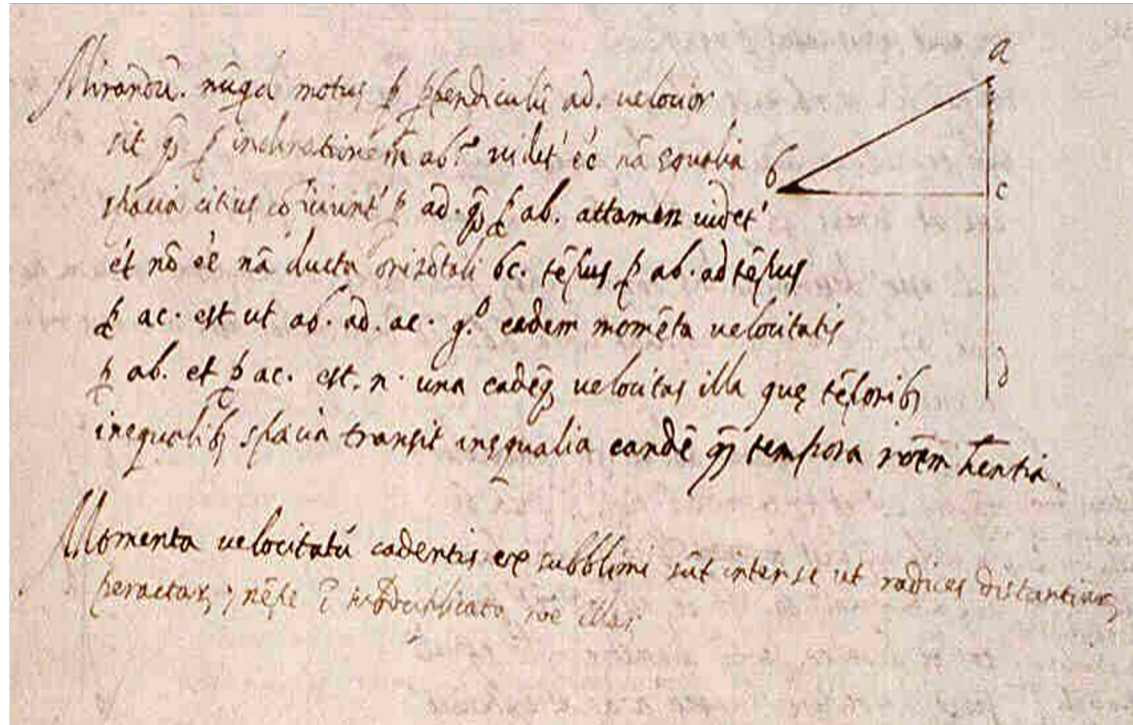 a
Mirandũ. nũqd motus ꝑ ꝑpendiculũ ad. velocior
sit ꝗ̃ ꝑ inclinationem ab. videt' eẽ nã equalia
spacia citius ꝑ ad. ꝗ̃ ꝑ ab. attamen videt'
b
c
et nõ eẽ nã ducta orizõtali bc. tẽpus ꝑ ab. ad tẽpus
ꝑ ac. est ut ab. ad. ac. gº eadem momẽta velocitatis
d
ꝑ ab. et ꝑ ac. est. n. una eadẽq velocitas illa quę tẽporib
inęqualib spacia transit inęqualia eandẽ ꝗ̃ tempora rõem hentia.
Momenta velocitatũ cadentis ex subblimi sũt intense ut radices distantiarꝝ
peractarꝝ; nẽpe ĩ roẽ illarꝝ